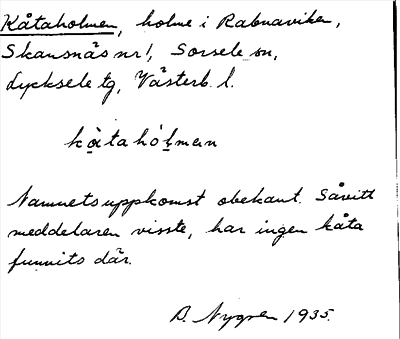 Kåtaholmen, holme i Rabnaviken,
Skansnäs nr 1, Sorsele sn,
Lycksele tg, Västerb. l.
kåtahólman
Namnets uppkomst obekant. Såvitt
meddelaren visste, har ingen kåta
funnits där.
B. Nygren 1935.